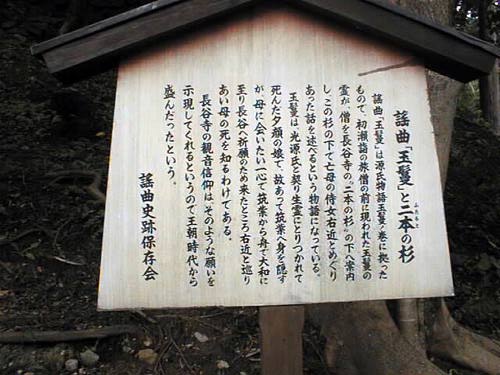 謡曲「玉鬘」と二本の杉
ふたもと
謡曲「玉鬘」は源氏物語玉鬘ノ巻に拠った
もので、初瀬詣の旅僧の前に現われた玉鬘の
霊が、僧を長谷寺の「二本の杉」の下へ案内
し、この杉の下で亡母の侍女右近とめぐり
あった話を述べるという物語になっている。
玉鬘は、光源氏と契り生霊にとりつかれて
死んだ夕顔の娘で、故あって筑紫へ身を隠す
が、母に会いたい一心で筑紫から舟で大和に
至り長谷へ祈願のため来たところ右近と巡り
あい母の死を知るわけである。
長谷寺の観音信仰は、そのような願いを
示現してくれるというので王朝時代から
盛んだったという。
謡曲史跡保存会